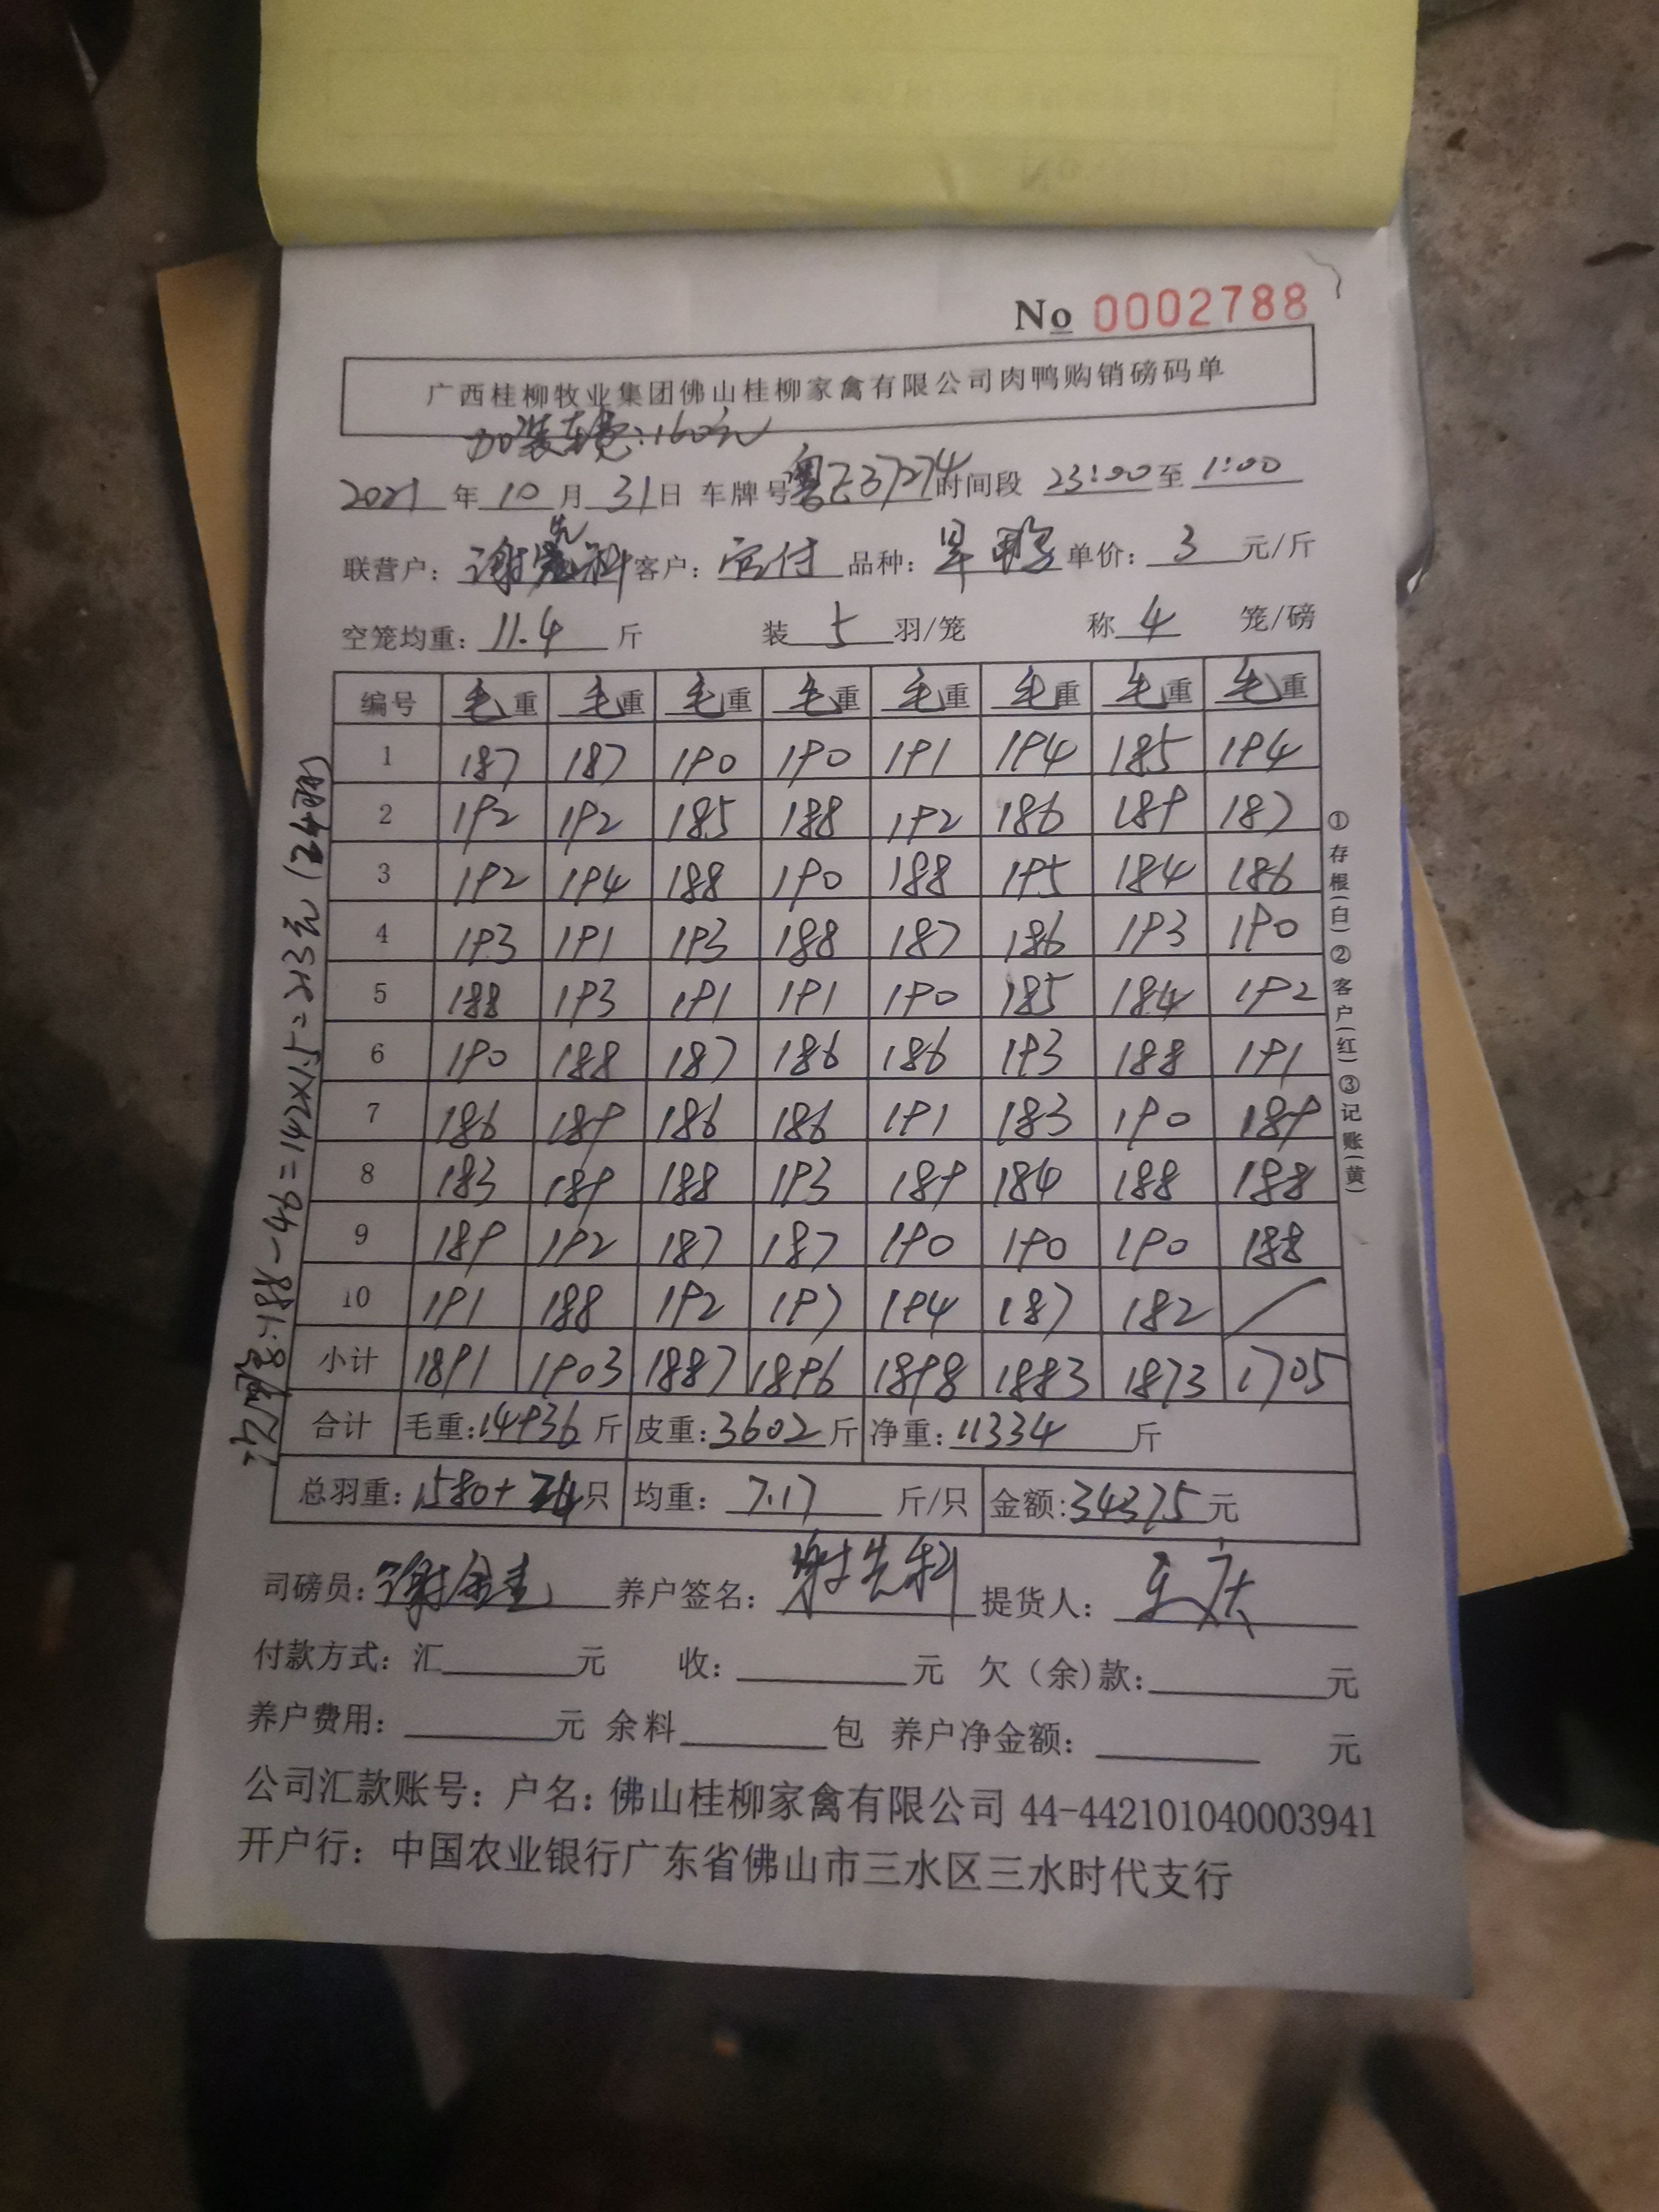 No 0002788
广西桂柳牧业集团佛山桂柳家禽有限公司肉鸭购销磅码单
加装车费:160元
2021年10月31日 车牌号粤E37274时间段 23:00至1:00
联营户: 谢先科 客户: 付 品种: 旱鸭 单价: 3 元/斤
空笼均重: 11.4 斤 装 5 羽/笼 称 4 笼/磅
编号 毛重 毛重 毛重 毛重 毛重 毛重 毛重 毛重
1 187 187 190 190 191 194 185 194
2 192 192 185 188 192 186 189 187
3 192 194 188 190 188 195 184 186
4 193 191 193 188 187 186 193 190
5 188 193 191 191 190 185 184 192
6 190 188 187 186 186 193 188 191
7 186 189 186 186 191 183 190 189
8 183 189 188 193 189 184 188 188
9 189 192 187 187 190 190 190 188
10 191 188 192 197 194 187 182 /
小计 1891 1903 1887 1896 1898 1883 1873 1705
合计 毛重:14936 斤 皮重:3602斤 净重:11334 斤
总羽重: 1580+24只 均重: 7.17 斤/只 金额:34375元
司磅员: 谢 养户签名: 谢先科 提货人:
付款方式: 汇 元 收: 元 欠(余)款: 元
养户费用: 元 余料 包 养户净金额: 元
公司汇款账号: 户名: 佛山桂柳家禽有限公司 44-442101040003941
开户行: 中国农业银行广东省佛山市三水区三水时代支行
:188-46=142×1.5=213元(24只)
①存根(白)②客户(红)③记账(黄)